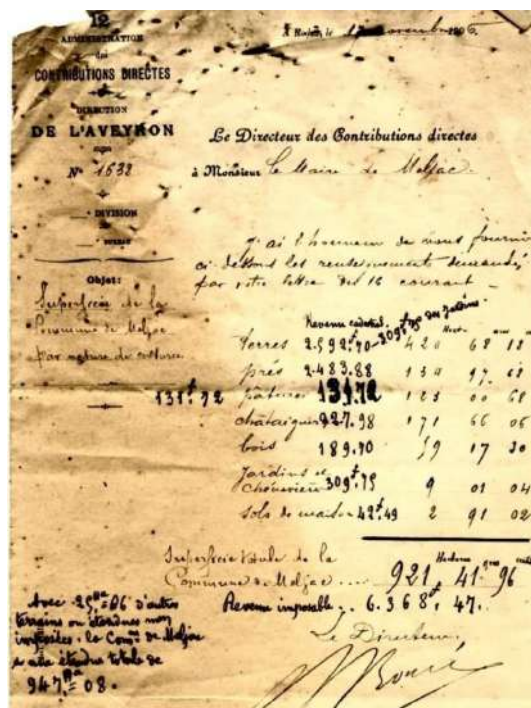 12
ADMINISTRATION
des
CONTRIBUTIONS DIRECTES
DIRECTION
DE L'AVEYRON
N° 1632
DIVISION
BUREAU
Objet:
Superficie de la
Commune de Meljac
par nature de cultures
A Rodez, le novembre 1906
Le Directeur des Contributions directes
à Monsieur le Maire de Meljac
J'ai l'honneur de vous fournir
ci-dessous les renseignements demandés
par votre lettre du 16 courant
Revenu cadastral
terres 2.592f.70 - 309f.75 des Jardins 420 68 18
prés 2.483.88 134 97 68
131f.72 pâtures 131.72 123 00 68
châtaign 927.98 171 66 06
bois 189.70 59 17 30
Jardins et
chènevière 309f.75 9 01 04
sols de maison 42f.49 2 91 02
Superficie totale de la
Commune de Meljac 921 41 96
Revenu imposable 6.368f 47.
Le Directeur,
Avec 25Ha 06 d'autres
terrains ou non
imposées la Comne de Meljac
a une étendue totale de
947Ha 08.